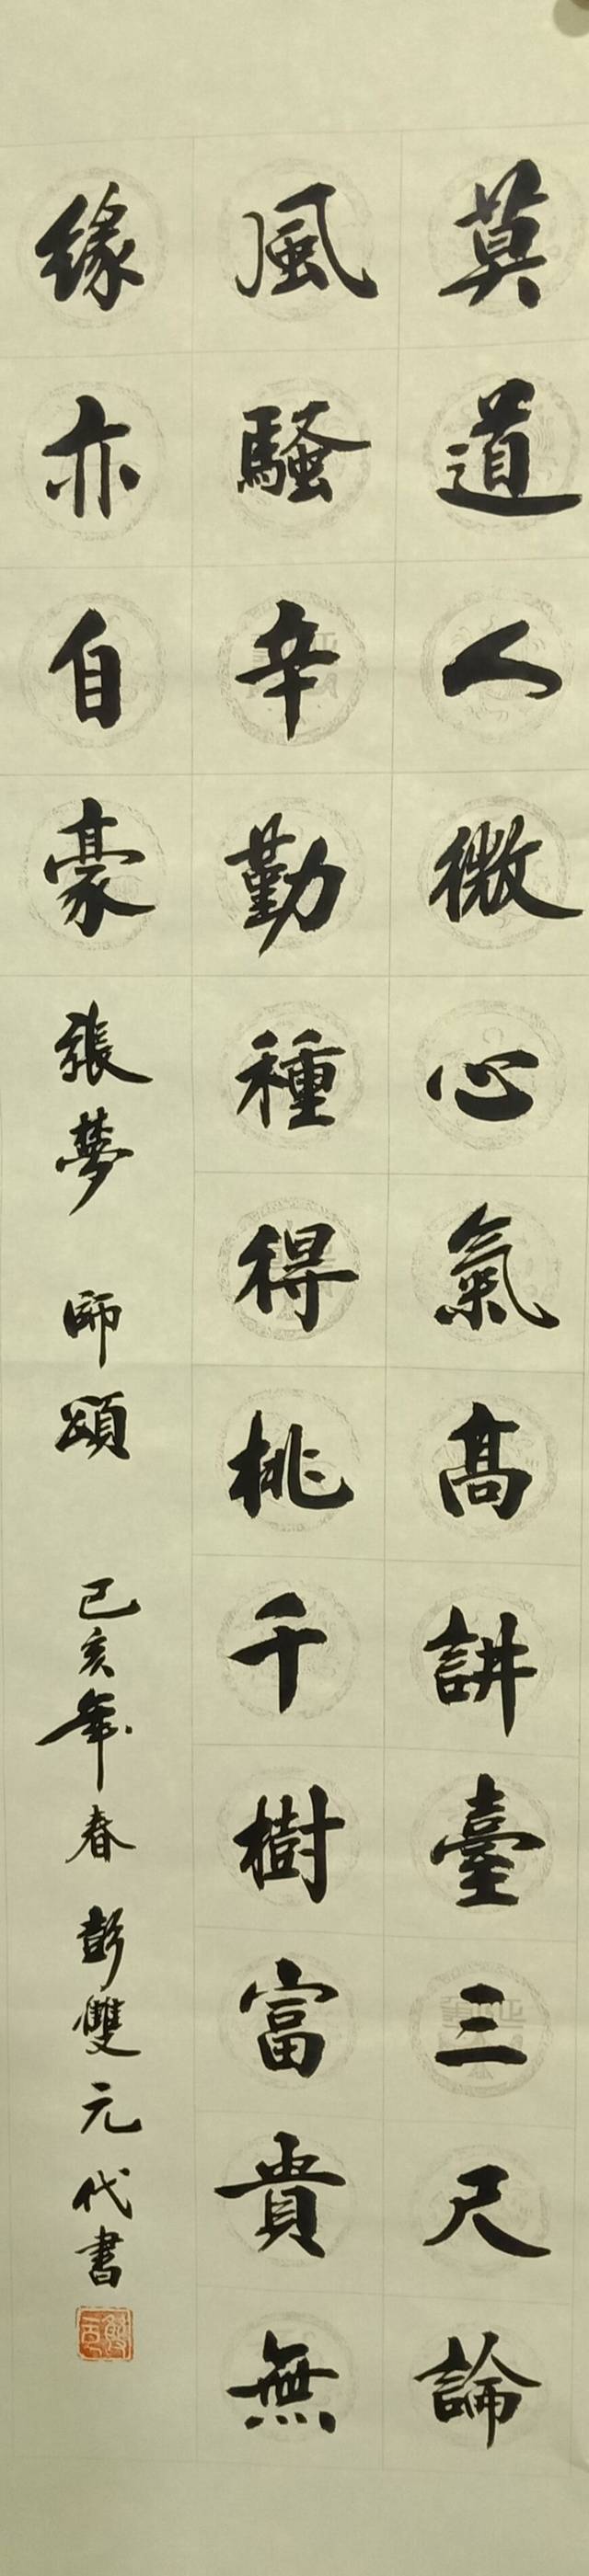 莫道人微心氣髙講臺三尺論
風騷辛勤種得桃千樹富貴無
緣亦自豪張夢師頌己亥年春彭雙元代書
雙元